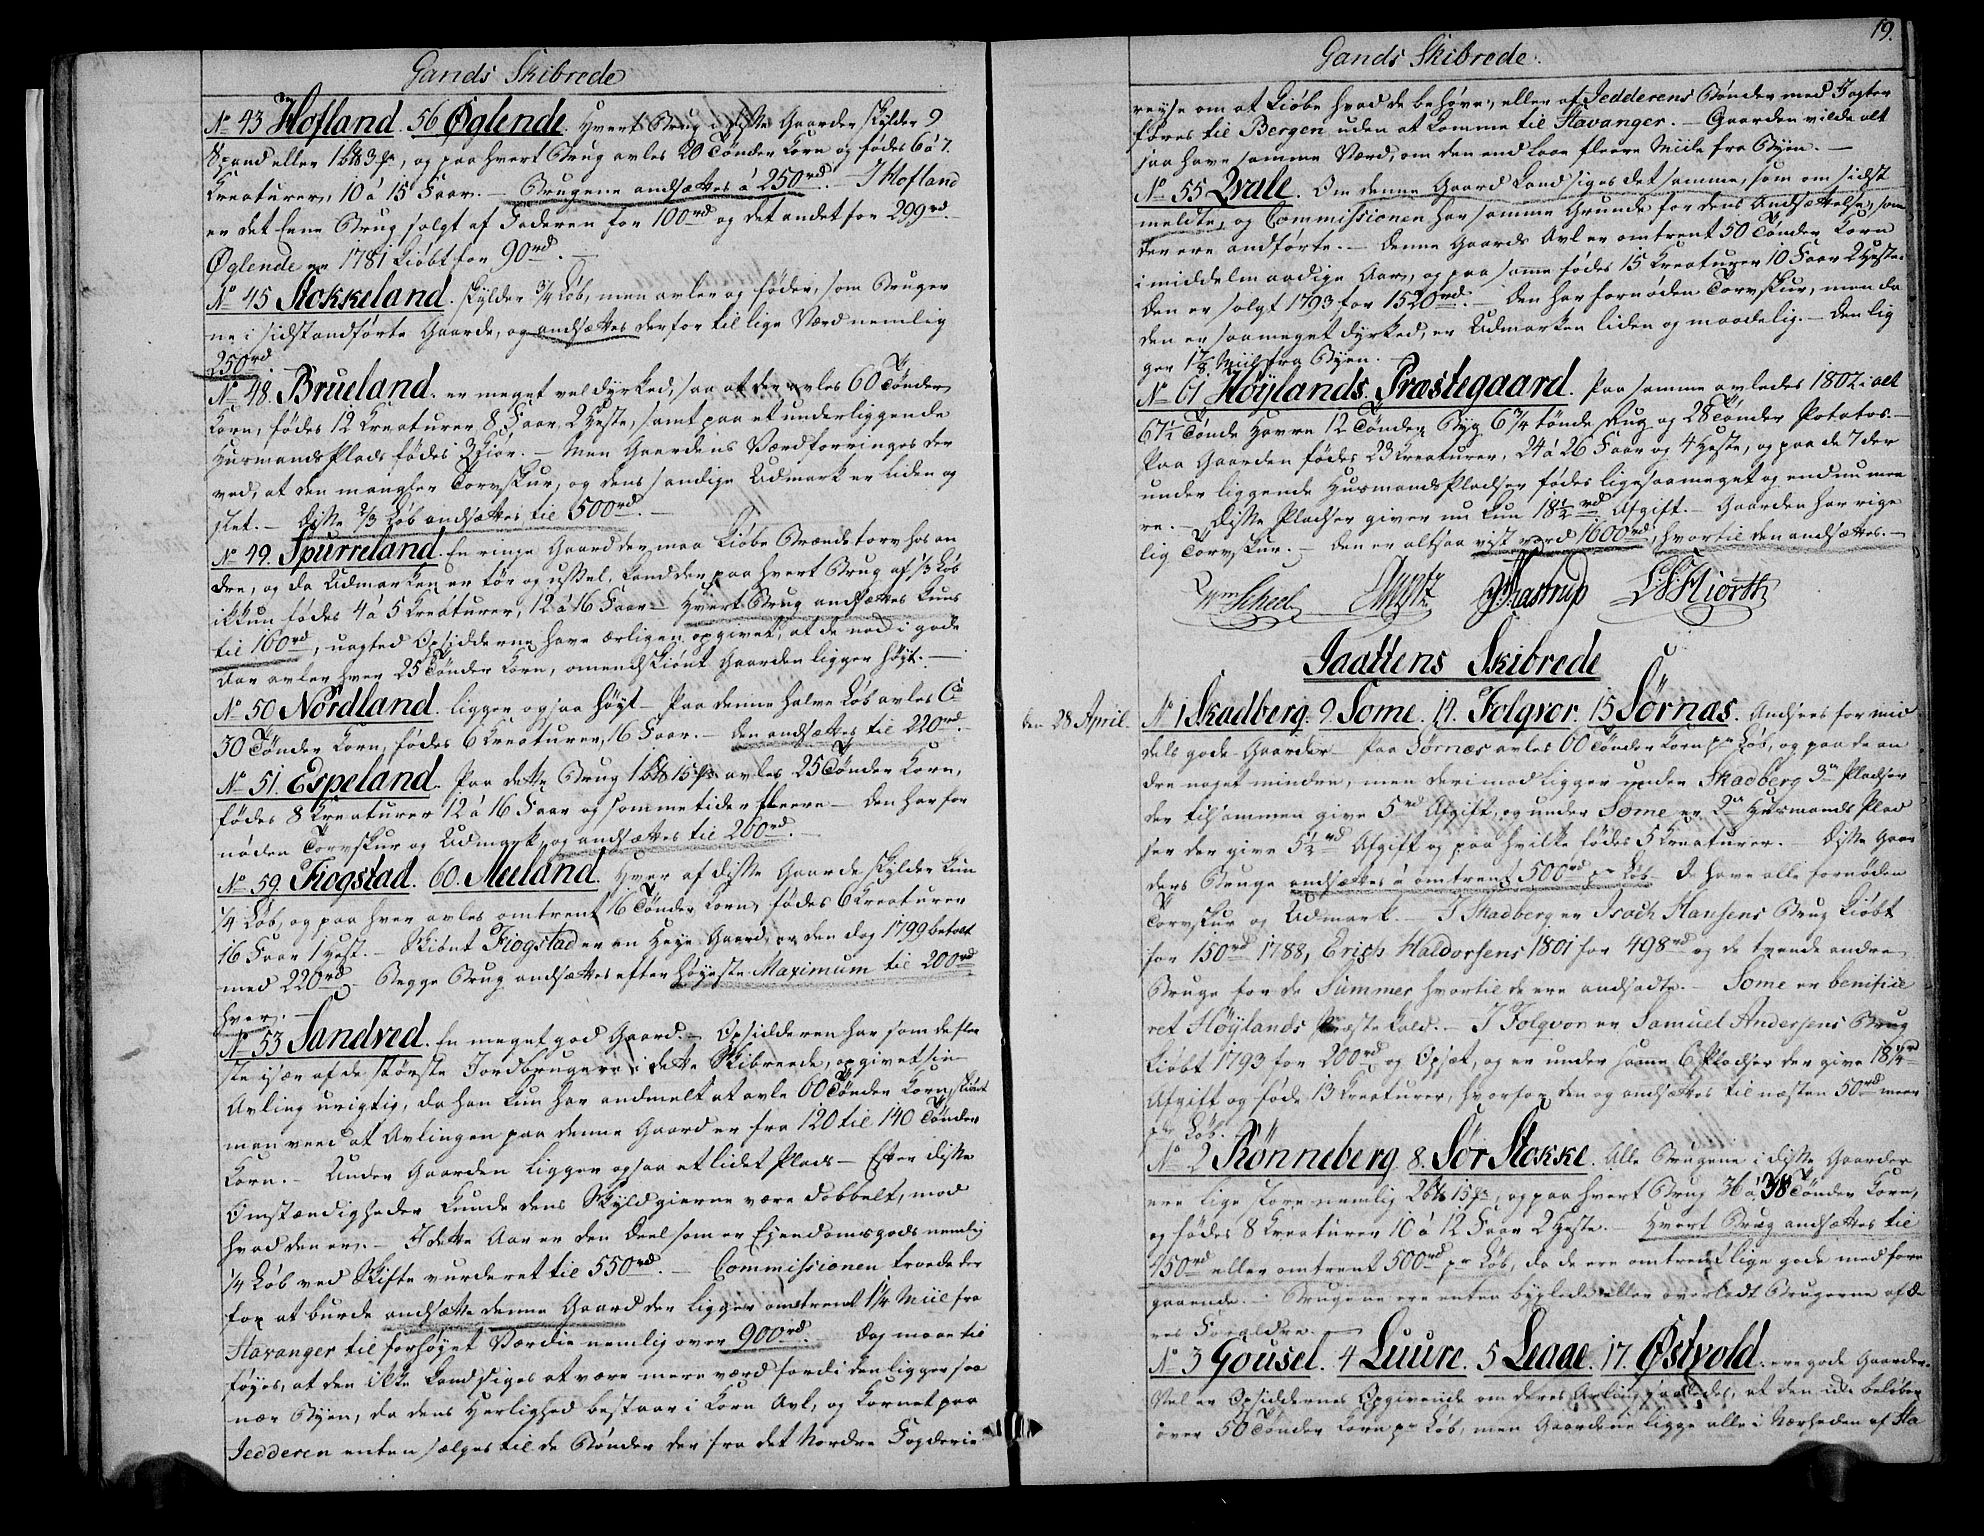 Gands Skibrede
No 43 Hofland. 56 Øglende. Hvert Brug i disse Gaarder skylder 2
Spand eller 1 b℔ 3 f, og paa hvert Brug avles 20 Tønder Korn og fødes 6 á 7
Kreaturer, 10 á 15 Faar. — Brugene andsættes á 250rd. — I Hofland
er det Eene Brug solgt af Faderen for 100rd og det andet for 299rd.
Øglende er 1781 kiøbt for 90rd. —
No 45 Stokkeland. skylder 3/4 Løb, men avler og føder, som Bruger
ne i sidstandførte Gaarde, og andsættes derfor til lige Værd nemlig
250rd.
No 48. Brueland. er meget vel dyrked, saa at der avles 60 Tønder
Korn, fødes 12 Kreaturer 8 Faar, 2 Heste, samt paa et underliggende
Husmands Plads fødes 3 Kiør. — Men Gaardens Værd forringes der
ved, at den mangler Torvskur, og dens sandige Udmark er liden og
slet. — Disse 2/3 Løb andsættes til 500rd. —
No 49. Spurreland. En ringe Gaard der maa kiøbe Brændetorv hos an
dre, og da Udmarken er tør og ussel, kand der paa hvert Brug af 1/3 Løb
ikkun fødes 4 á 5 Kreaturer, 12 á 16 Faar — Hvert Brug andsættes kuns
til 160rd, uagted Opsidderne have ærligen opgivet, at de nød i gode
Aar avler hver 25 Tønder Korn, omendskiønt Gaarden ligger høyt. —
No 50 Nordland. ligger ogsaa høyt — Paa denne halve Løb avles Ca
30 Tønder Korn, fødes 6 Kreaturer, 16 Faar. — den andsættes til 220rd. —
No 51. Espeland. Paa dette Brug 1 b℔ 15 f avles 25 Tønder Korn,
fødes 8 Kreaturer 12 á 16 Faar og sommetider fleere — Den har for
nøden Torvskur og Udmark, og andsættes til 200rd. —
No 59. Fiogstad. 60. Meeland. Hver af disse Gaarde skylder kun
1/4 Løb, og paa hver avles omtrent 16 Tønder Korn, fødes 6 Kreaturer
16 Faar 1 Hest. — Skiønt Fiogstad er en Heye Gaard, er den dog 1799 betalt
med 220rd. Begge Brug andsættes efter høyeste Maximum til 200rd
hver. —
No 53 Sandved. En meget god Gaard. — Opsidderen har som de fle
ste især af de største Jordbrugere i dette Skibreede, opgivet sin
Avling urigtig, da han kun har andmelt at avle 60 Tønder Korn, skiønt
man veed at Avlingen paa denne Gaard er fra 120 til 140 Tønder
Korn. — Under Gaarden ligger ogsaa et lidet Plads — Efter disse
Omstændigheder kunde dens Skyld gierne være dobbelt, mod
hvad den er. — I dette Aar er den Deel som er Ejendomsgods nemlig
1/4 Løb ved Skifte vurderet til 550rd. — Commissionen troede der
for at burde andsætte denne Gaard der ligger omtrent 1 1/4 Miil fra
Stavanger til forhøyet Værdie nemlig over 900rd. — Dog maae til
føyes, at den ikke kand siges at være mere værd fordi den ligger saa
nær Byen, da dens Herlighed bestaar i Korn Avl, og Kornet paa
Jedderen enten sælges til de Bønder der fra det Nordre Fogderie
19.
Gands Skibrede.
reyse om at kiøbe hvad de behøve, eller af Jedderens Bønder med Jagter
føres til Bergen uden at komme til Stavanger. — Gaarden vilde alt
saa have samme Værd, om den end laae fleere Miile fra Byen. —
No 55 Qvale. Om denne Gaard kand siges det samme, som om sidst
meldte, og Commissionen har samme Grunde for dens Andsættelse, som
der ere andførte. — Denne Gaards Avl er omtrent 50 Tønder Korn
i middelmaadige Aar, og paa samme fødes 15 Kreaturer 10 Faar 2 Heste.
Den er solgt 1793 for 1520rd. — Den har fornøden Torvskur, men da
den er saa meget dyrked, er Udmarken liden og maadelig. — Den lig
ger 1 7/8 Miil fra Byen. —
No 61 Høylands Præstegaard. Paa samme avledes 1802 i alt
67 1/2 Tønde Havre 12 Tønder Byg 6 1/4 tønde Rug og 28 Tønder Potatos. —
Paa Gaarden fødes 23 Kreaturer, 24 á 26 Faar og 4 Heste, og paa de 7 der
under liggende Husmands Pladser fødes ligesaameget og endnu mee
re. — Disse Pladser giver nu kun 18 1/2 rd Afgift. — Gaarden har rige
lig Torvskur. — Den er altsaa vist værd 1600rd, hvortil den andsættes. —
Wm Scheel Müntz Hastrup L S Hiorth
Jaattens Skibrede
den 28 April.
No 1 Skadberg. 9 Some. 14. Folgvor. 15 Sørnæs. Andsees for mid
dels gode Gaarder — Paa Sørnæs avles 60 Tønder Korn pr Løb, og paa de an
dre noget mindre, men derimod ligger under Skadberg 3de Pladser
der tilsammen give 5rd Afgift, og under Some er 2de Husmands Plad
ser der give 5 1/2 rd Afgift og paa hvilke fødes 5 Kreaturer. — Disse Gaar
ders Bruge andsættes á omtrent 500rd pr Løb — De have alle fornøden
Torvskur og Udmark. — I Skadberg er Isach Hansens Brug kiøbt
for 150rd 1788, Erich Haldorsens 1801 for 498rd og de tvende andre
Bruge for de Summer hvortil de ere andsadte. — Some er benificie
ret Høylands Præste kald. — I Folgvor er Samuel Andersens Brug
kiøbt 1793 for 200rd og Opsæt, og er under samme 6 Pladser der give 18 1/4 rd
Afgift og føde 13 Kreaturer, hvorfor den og andsættes til næsten 50rd meer
pr Løb.
No 2 Rønneberg. 8. Sør Stokke. Alle Brugene i disse Gaarder
ere lige store nemlig 2 b℔ 15 f, og paa hvert Brug 36 á 38 Tønder Korn,
og fødes 8 Kreaturer 10 á 12 Faar 2 Heste. — Hvert Brug andsættes til
450rd eller omtrent 500rd pr Løb, da de ere omtrent lige gode med fore
gaaende. — Brugene ere enten byxlede eller overladt Brugerne af de
res Forældre. —
No 3 Gousel. 4 Luure. 5 Leage. 17. Østvold. ere gode Gaarder.
Vel er Opsiddernes Opgivende om deres Avling saaledes, at den ikke beløber
over 50 Tønder Korn pr Løb, men Gaardene ligge alle i Nærheden af Sta